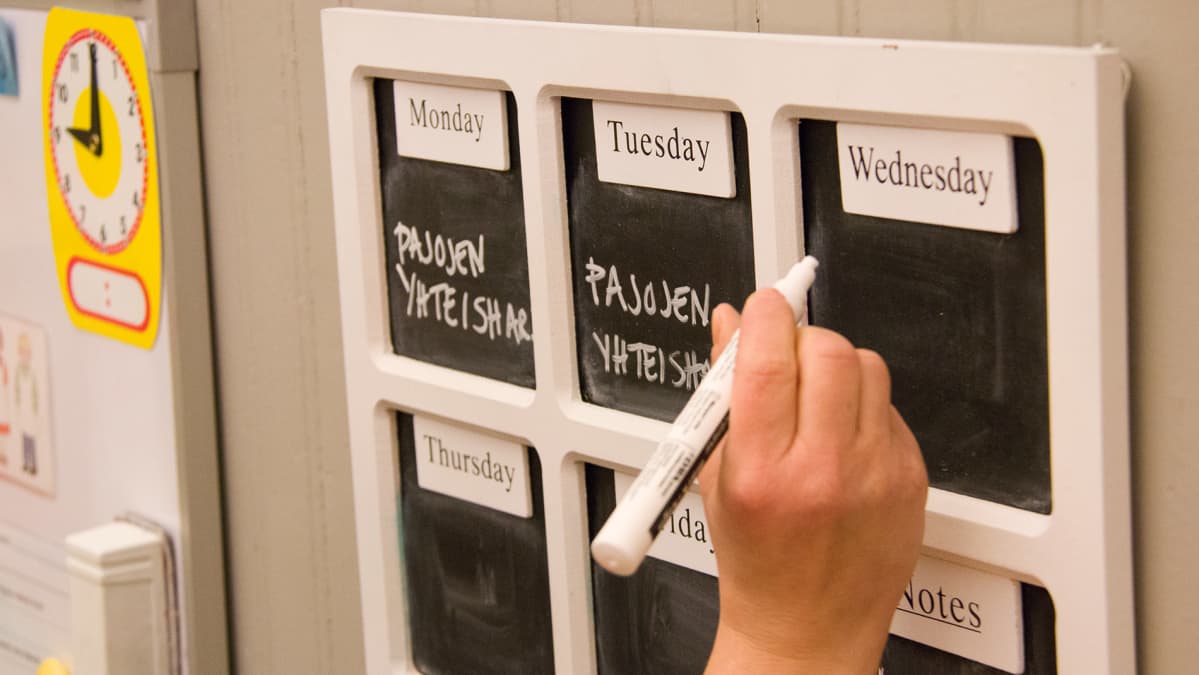 Monday
PAJOJEN
YHTEISHAR.
Tuesday
PAJOJEN
YHTEISHA
Wednesday
Thursday
iday
Notes
11
1
10
2
9
3
8
4
7
6
5
: